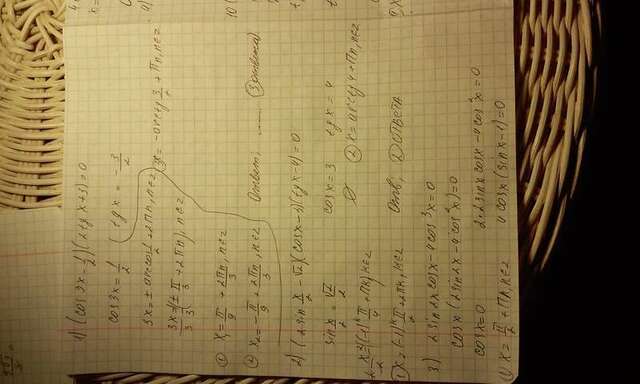 1) (cos 3x - 1/2)(2tg x + 3) = 0
cos 3x = 1/2 tg x = - 3/2
3x = ± arccos 1/2 + 2πn, n∈z x = - arctg 3/2 + πn, n∈z
3x = ± π/3 + 2πn, n∈z
① x₁ = π/9 + 2πn/3, n∈z
② x₂ = - π/9 + 2πn/3, n∈z Ответ: ...... (3 ответа)
2) (2sin x/2 - √2)(cos x - 3)(tg x - 4) = 0
sin x/2 = √2/2 cos x = 3 tg x = 4
x/2 = (-1)ᵏ π/4 + πk, k∈z ∅ ② x = arctg 4 + πn, n∈z
① x = (-1)ᵏ π/2 + 2πk, k∈z Отв. 2 ответа
3) 2sin2x cosx - 4cos³x = 0
cosx (2sin2x - 4cos²x) = 0
cosx = 0 2·2sinx cosx - 4cos²x = 0
① x = π/2 + πn, n∈z 4cosx (sinx - 1) = 0
10